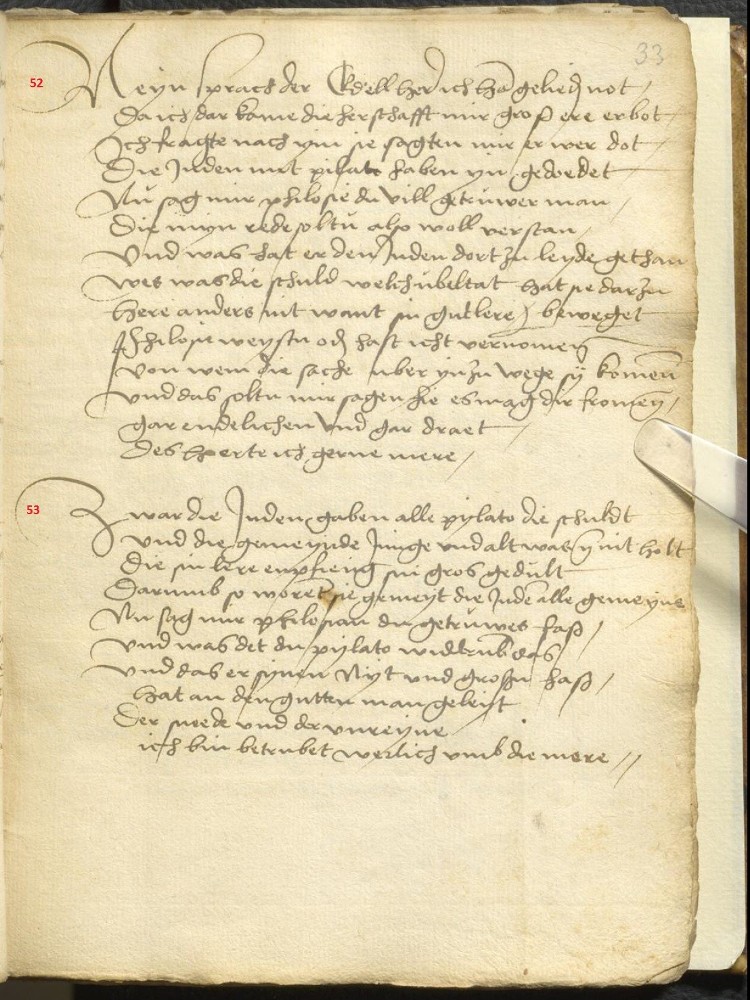 33
52
Neyn sprach der Edell her ich hā gelieden not /
Da ich dar kame die herschafft mir groß ere erbot
Ich fragte nach ym sie sagten mir er wer dot
Die Juden mit pilato haben yn gedoedet
Nu sag mir philosie du vill getruwer man /
Die myn rede soltu also woll verstan
Und was hat er den Juden dort zu leyde gethan
wes was die schuld welch ubeltat hat sie dar zu
here anders nit want sin gut lere beweget
Philosie weystu od hast icht vernomen
von wem die sache uber yn zu wege sy komen
und das soltu mir sagen hie es mag dir fromen /
gar endelichen und gar draet
Des horte ich gerne mere /
53
Zwar die Juden gaben alle pylato die schuldt
und die gemeynde Junge und alt was ym nit holt
Die sin lere enpfieng sin gros gedult
Darumb so woret sie gemeyt die Juden alle gemeyne
Nu sag mir philosian du getruwes faß /
und was det du pylato widdrumb das
und das er synen Nyt und großen haß /
hat an den gutten man geleyt
Der sneede und der unreyne
ich bin betrubet werlich umb die mere //